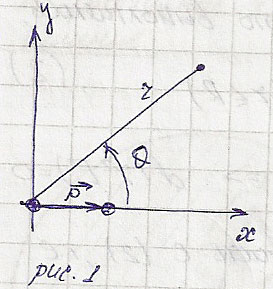 y
r
θ
p
x
рис. 1